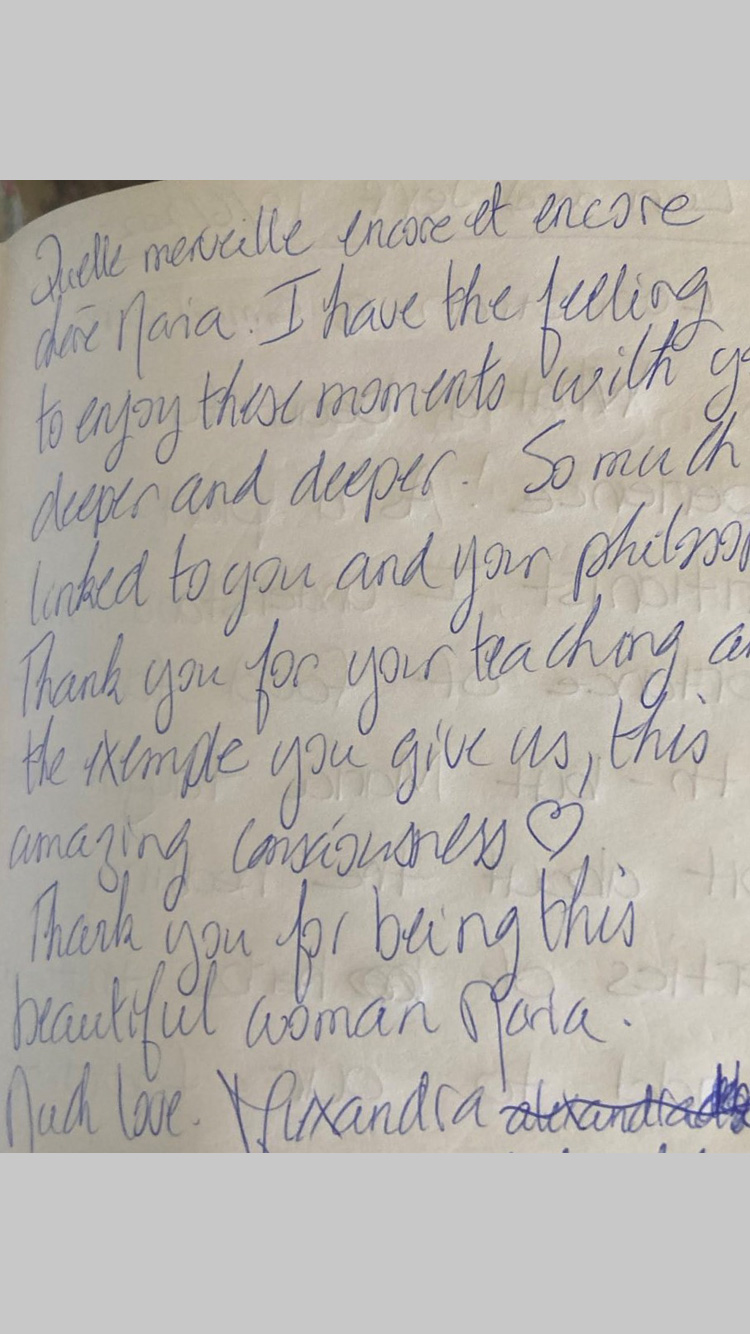 Quelle merveille encore et encore
chère Maria. I have the feeling
to enjoy these moments with yo
deeper and deeper. So much
linked to you and your philosop
Thank you for your teaching an
the exemple you give us, this
amazing consciousness ♡
Thank you for being this
beautiful woman Maria.
Much love. alexandra